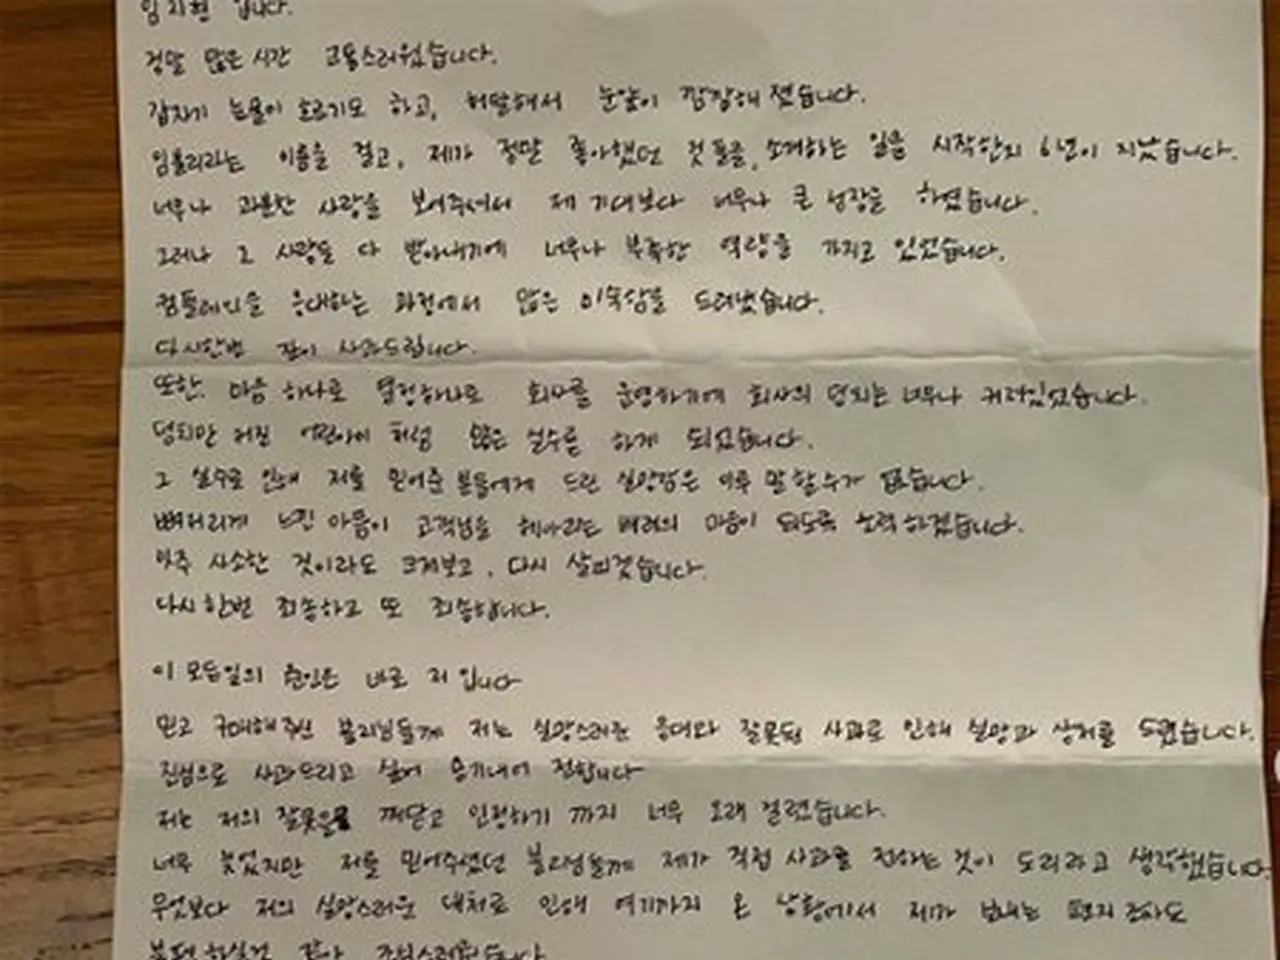 임지현 입니다.
정말 많은 시간 고통스러웠습니다.
갑자기 눈물이 흐르기도 하고, 허탈해서 눈앞이 깜깜해 졌습니다.
임블리라는 이름을 걸고, 제가 정말 좋아했던 것들을 소개하는 일을 시작한지 6년이 지났습니다.
너무나 과분한 사랑을 보여주셔서 제 기대보다 너무나 큰 성장을 하였습니다.
그러나 그 사랑을 다 받아내기에 너무나 부족한 역량을 가지고 있었습니다.
컴플레인을 응대하는 과정에서 많은 미숙함을 드러냈습니다.
다시한번 깊이 사과드립니다.
또한, 마음 하나로 열정하나로 회사를 운영하기에 회사의 덩치는 너무나 커져있었습니다.
덩치만 커진 어린아이 처럼 많은 실수를 하게 되었습니다.
그 실수로 인해 저를 믿어준 분들에게 드린 실망감은 이루 말할수가 없습니다.
뼈저리게 느낀 아픔이 고객님을 헤아리는 배려의 마음이 되도록 노력하겠습니다.
아주 사소한 것이라도 크게보고, 다시 살피겠습니다.
다시한번 죄송하고 또 죄송합니다.
이 모든일의 원인은 바로 저 입니다
믿고 구매해주신 블리님들께 저는 실망스러운 응대와 잘못된 사과로 인해 실망과 상처를 드렸습니다.
진심으로 사과드리고 싶어 용기내어 전합니다
저는 저의 잘못을 깨닫고 인정하기 까지 너무 오래 걸렸습니다.
너무 늦었지만 저를 믿어주셨던 블리님들께 제가 직접 사과를 전하는 것이 도리라고 생각했습니다.
무엇보다 저의 실망스러운 대처로 인해 여기까지 온 상황에서 제가 보내는 편지 조차도
불편하실것 같아 조심스러웠습니다.